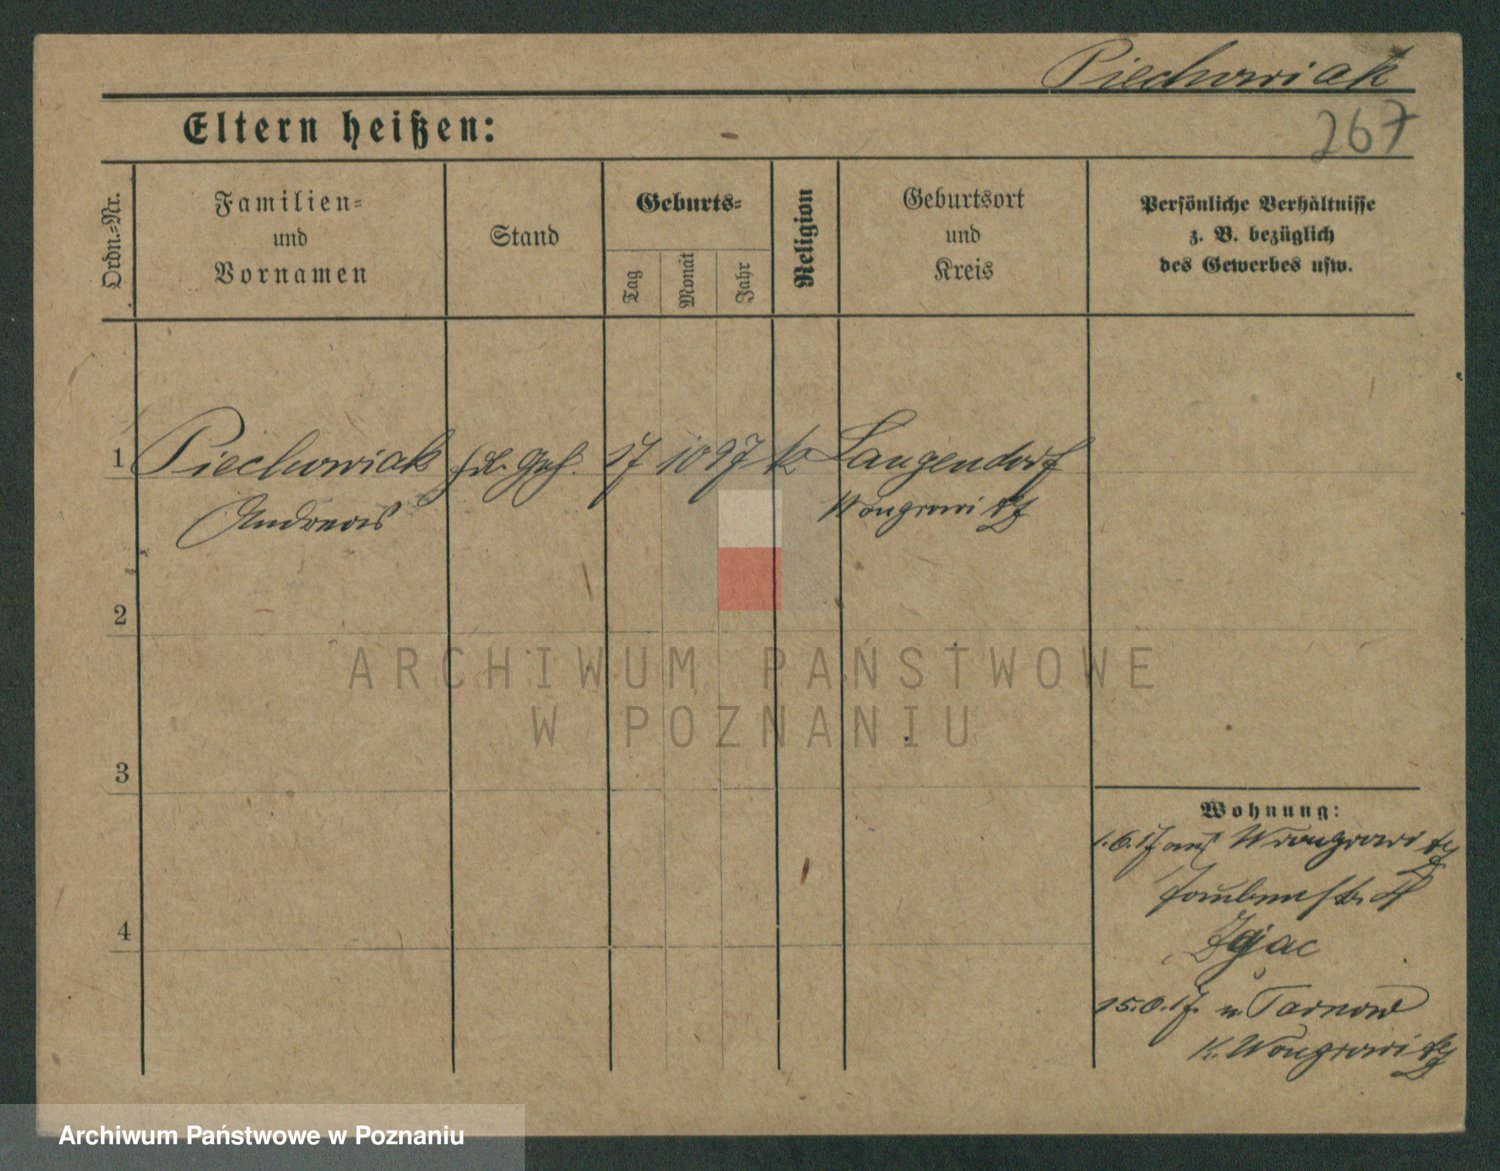 Piechowiak
267
Eltern heißen:
Ordn.-Nr.
Familien-
und
Vornamen
Stand
Geburts-
Tag
Monat
Jahr
Religion
Geburtsort
und
Kreis
Persönliche Verhältnisse
z. B. bezüglich
des Gewerbes usw.
1 Piechowiak 17 10 97 k Langendorf
Andreas Wongrowitz
2
3
4
Wohnung:
1.6.17 aus Wongrowitz
Taubenstr.
Zajac
15.6.17. n. Tarnowo
K. Wongrowitz
ARCHIWUM PAŃSTWOWE
W POZNANIU
Archiwum Państwowe w Poznaniu